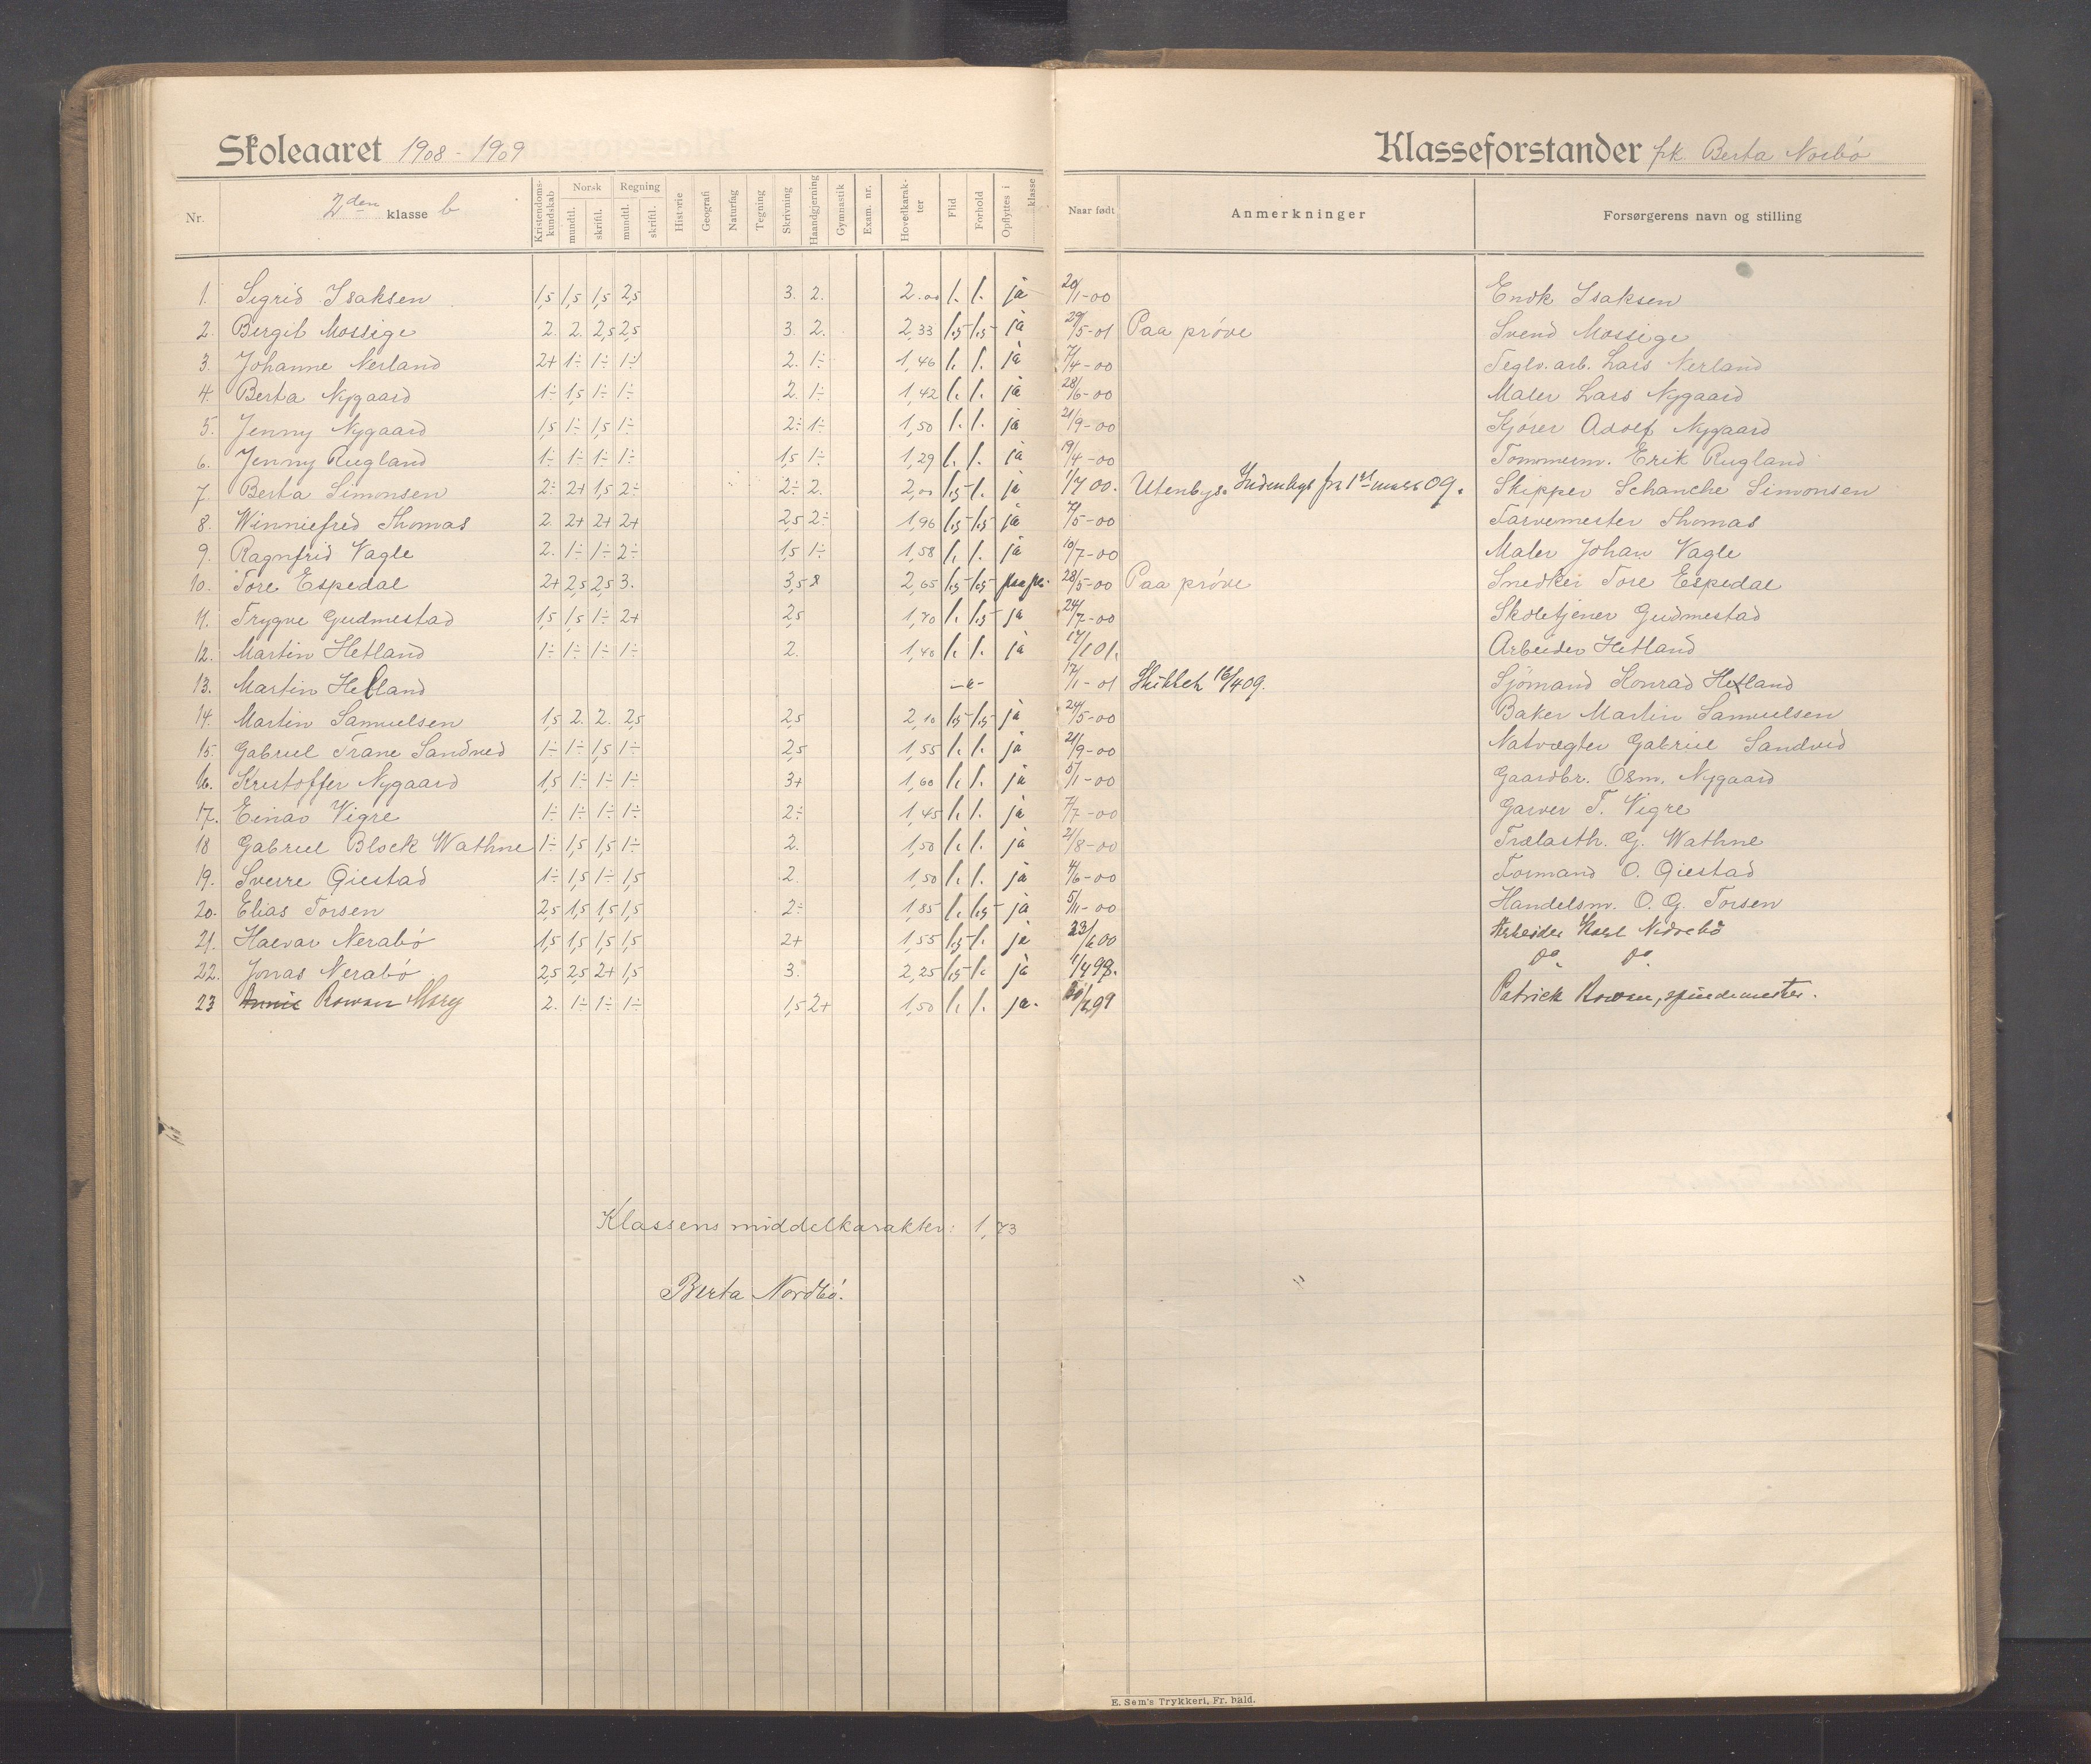 Skoleaaret 1908 - 1909
Klasseforstander frk. Berta Norbø
Nr. 2den klasse b Kristendomskundskab Norsk mundtl. skriftl. Regning mundtl. skriftl. Historie Geografi Naturfag Tegning Skrivning Haandgjerning Gymnastik Exam. nr. Hovedkarakter Flid Forhold Opflyttes i klasse Naar født Anmerkninger Forsørgerens navn og stilling
1. Sigrid Isaksen 1,5 1,5 1,5 2,5 3. 2. 2.00 1. 1. ja 20/1-00 Endk Isaksen
2. Bergit Mossige 2. 2. 2,5 2,5 3. 2. 2,33 1,5 1,5 ja 29/5-01 Paa prøve Svend Mossige
3. Johanne Nerland 2+ 1÷ 1÷ 1÷ 2. 1÷ 1,46 1. 1. ja 7/4-00 Teglv. arb. Lars Nerland
4. Berta Nygaard 1÷ 1,5 1÷ 1÷ 2. 1÷ 1,42 1. 1. ja 28/6-00 Maler Lars Nygaard
5. Jenny Nygaard 1,5 1÷ 1,5 1÷ 2÷ 1÷ 1,50 1. 1. ja 21/9-00 Kjører Adolf Nygaard
6. Jenny Rugland 1÷ 1÷ 1÷ 1÷ 1,5 1÷ 1,29 1. 1. ja 19/4-00 Tømmerm. Erik Rugland
7. Berta Simonsen 2÷ 2+ 1,5 2÷ 2÷ 2. 2,00 1,5 1. ja 1/7 00. Utenbys. Indenbys fra 1ste mars 09. Skipper Schanche Simonsen
8. Winniefred Thomas 2. 2+ 2+ 2+ 2,5 2÷ 1,96 1,5 1,5 ja 7/5-00 Farvemester Thomas
9. Ragnfrid Vagle 2. 1÷ 1÷ 2÷ 1,5 1÷ 1,58 1. 1. ja 10/7-00 Maler Johan Vagle
10. Tore Espedal 2+ 2,5 2,5 3. 3,5 2,65 1,5 1,5 paa pr. 28/5-00 Paa prøve Snedker Tore Espedal
11. Trygve Gudmestad 1,5 1,5 1÷ 2+ 2,5 1,70 1. 1,5 ja 24/7-00 Skoletjener Gudmestad
12. Martin Hetland 1÷ 1÷ 1÷ 1÷ 2. 1,40 1. 1. ja 17/1 01. Arbeider Hetland
13. Martin Helland 17/1-01 Skiktet 16/4 09. Sjømand Konrad Hetland
14. Martin Samuelsen 1,5 2. 2. 2,5 2,5 2,10 1,5 1,5 ja 24/5-00 Baker Martin Samuelsen
15. Gabriel Trane Sandved 1÷ 1÷ 1,5 1÷ 2,5 1,55 1. 1. ja 21/9-00 Natvægter Gabriel Sandved
16. Kristoffer Nygaard 1,5 1÷ 1÷ 1÷ 3+ 1,60 1. 1. ja 5/1-00 Gaardbr. Osm. Nygaard
17. Einar Vigre 1÷ 1÷ 1÷ 1÷ 2÷ 1,45 1. 1. ja 7/7-00 Garver T. Vigre
18 Gabriel Block Wathne 1÷ 1,5 1,5 1÷ 2. 1,50 1. 1. ja 21/8-00 Trælasth. G. Wathne
19. Sverre Qiestad 1÷ 1,5 1÷ 1,5 2. 1,50 1. 1. ja 4/6-00 Formand O. Qiestad
20. Elias Torsen 2,5 1,5 1,5 1,5 2÷ 1,85 1. 1,5 ja 5/11-00 Handelsm. O. G. Torsen
21. Halvar Nerabø 1,5 1,5 1,5 1,5 2+ 1,55 1,5 1. ja 23/6 00 Arbeider Karl Nedrebø
22. Jonas Nerabø 2,5 2,5 2+ 1,5 3. 2,25 1,5 1. ja 1/4 98. Do. Do.
23 Annie Rowan Mary 2. 1÷ 1÷ 1÷ 1,5 2+ 1,50 1. 1. ja. Patrick Rowan, spindemester.
Klassens middelkarakter: 1,73
Berta Nordbø.
E. Sem's Trykkeri, Fr. hald.